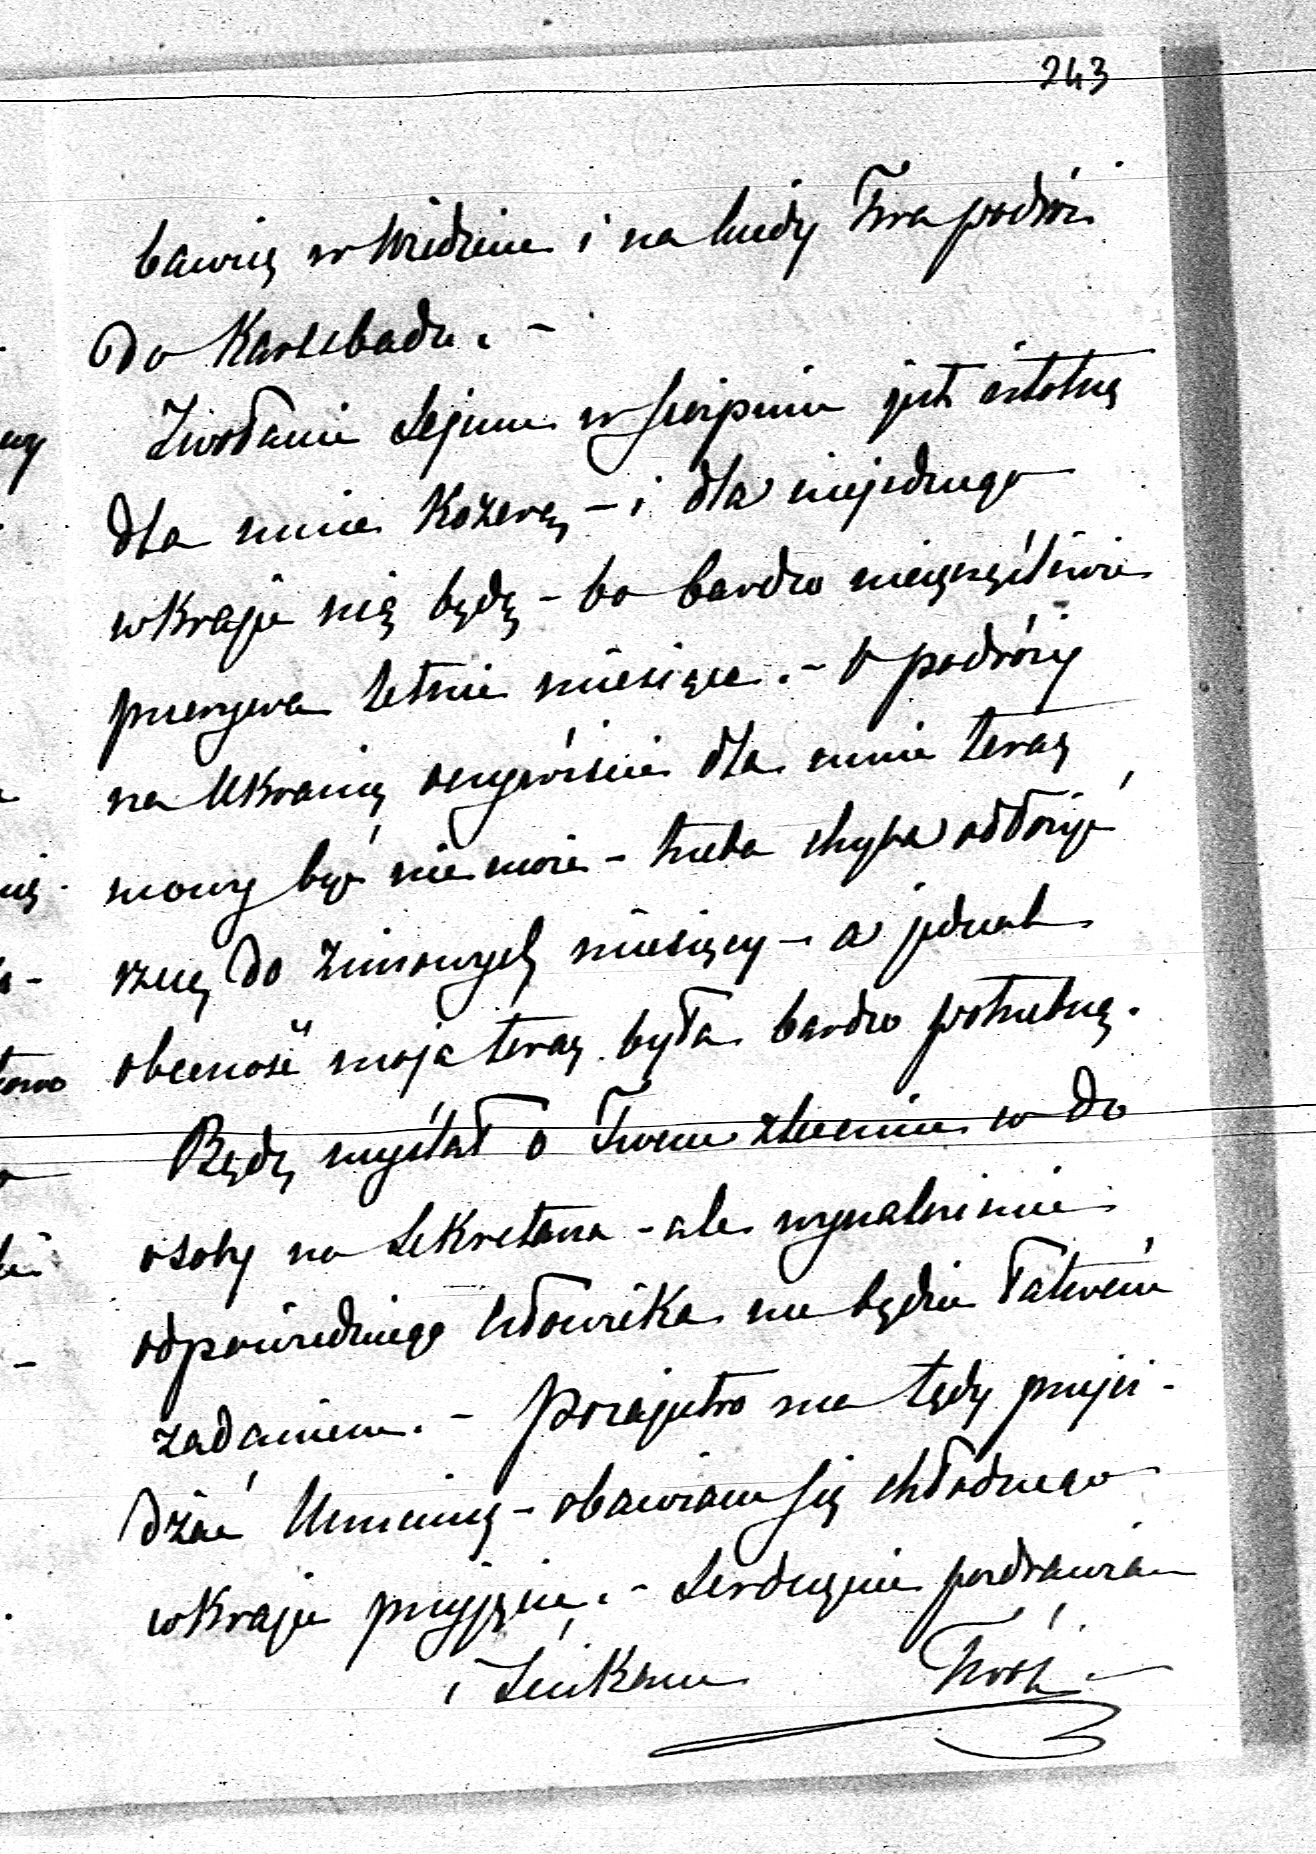 243
bawię w Widniu i na kiedy Twa podróż
do Karlsbadu. -
Zwołanie Sejmu w sierpniu jest istotną
dla mnie kozerą - i dla niejednego
w kraju nią będę - bo bardzo nieszczęśliwie
przerywa letnie miesiące. - O podróży
na Ukrainę oczywiście dla mnie teraz
mowy być nie może - trzeba chyba odłożyć
rzecz do zimowych miesięcy - a jednak
obecność moja teraz była bardzo potrzebną.
Będę myślał o Twem zleceniu w do
osoby na Sekretarza - ale wynalezienie
odpowiedniego człowieka nie będzie łatwém
zadaniem. - Pozajutro ma tędy przejeż-
dżać - obawiam się chłodnego
w kraju przyjęcia. - Serdecznie pozdrawiam
i ściskam Twój